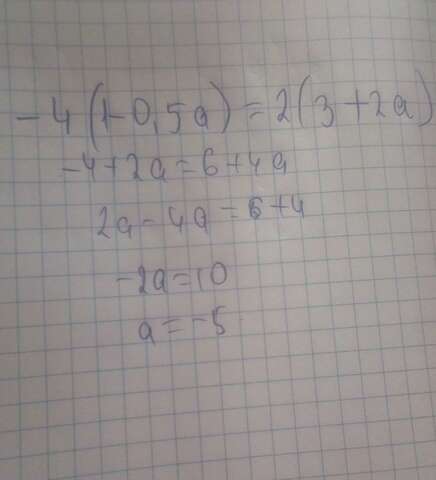 -4(1-0,5a)=2(3+2a)
-4+2a=6+4a
2a-4a=6+4
-2a=10
a=-5